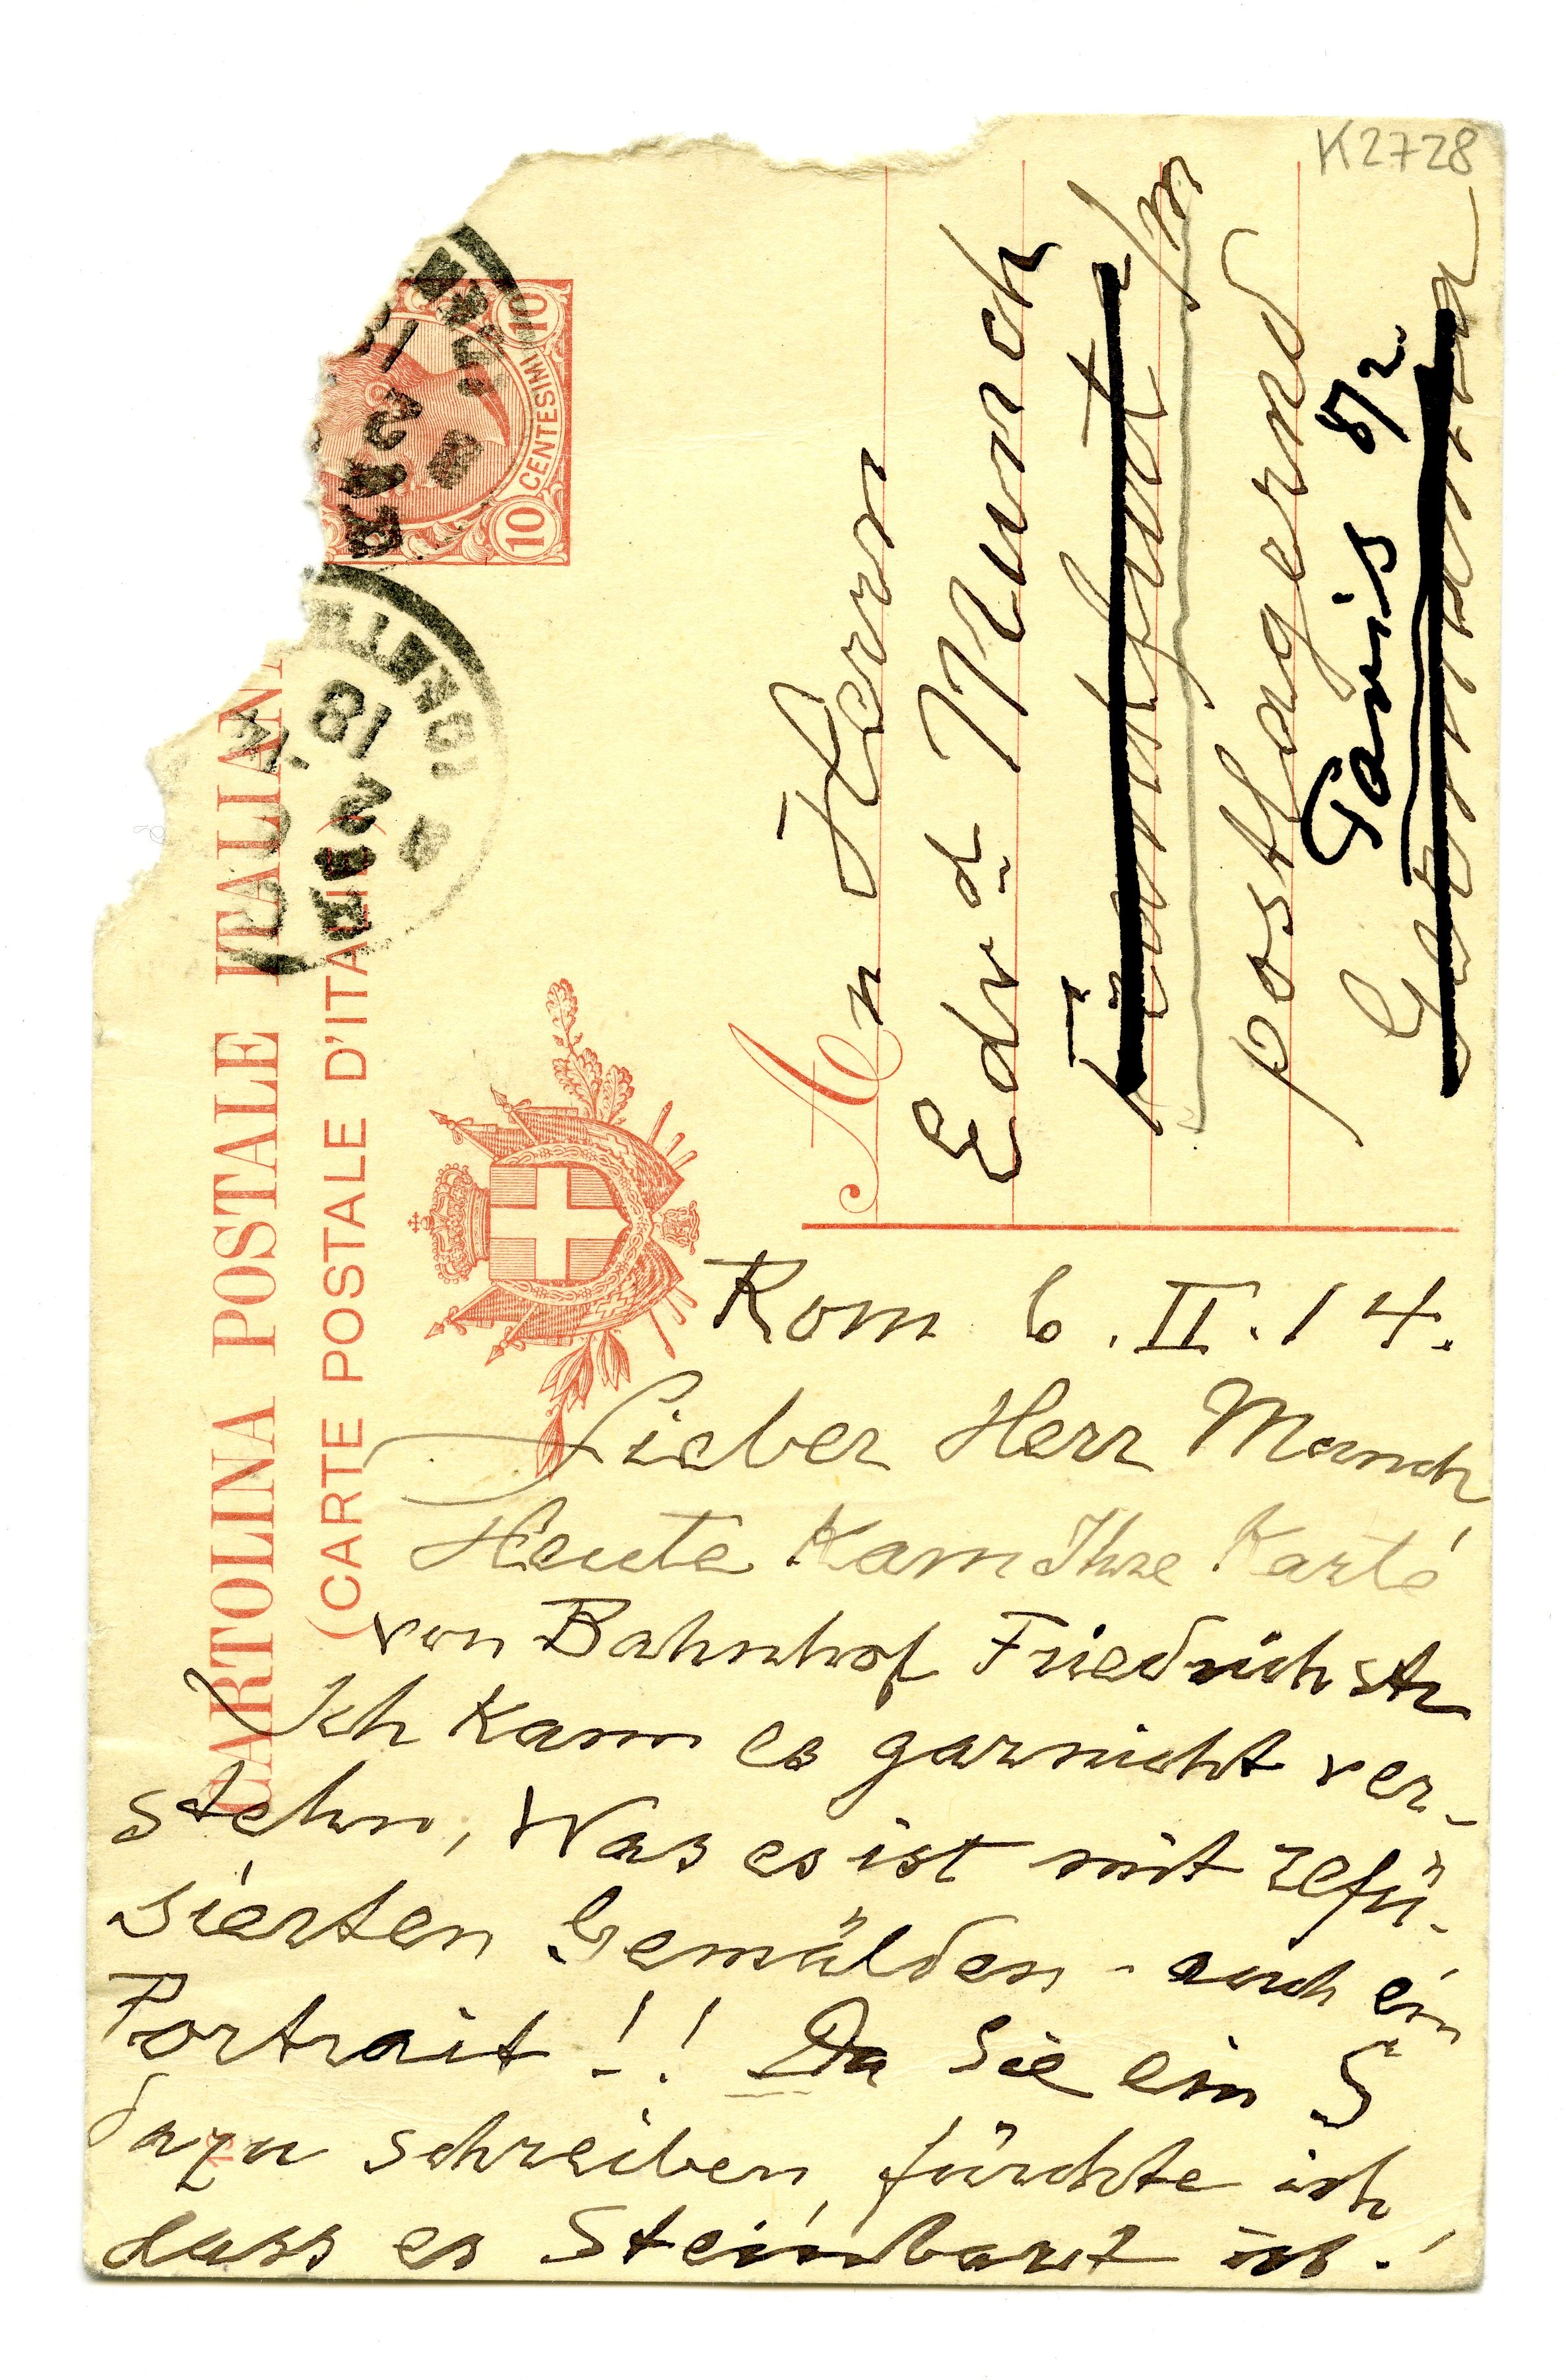 K2728
CARTOLINA POSTALE ITALIANA
(CARTE POSTALE D'ITALIE)
10 CENTESIMI 10
18
2
18
2
14
An Herrn
Edvard Munch
Frankfurt a/m
postlagernd
Paris 8/2.
Germania
Rom 6.II.14.
Lieber Herr Munch
Heute kam Ihre Karte
von Bahnhof Friedrichstr
Ich kann es garnicht ver-
stehn, was es ist mit refü-
sierten Gemälden - auch ein
Portrait!! Da Sie ein S
dazu schreiben, fürchte ich
dass es Steinbart ist!